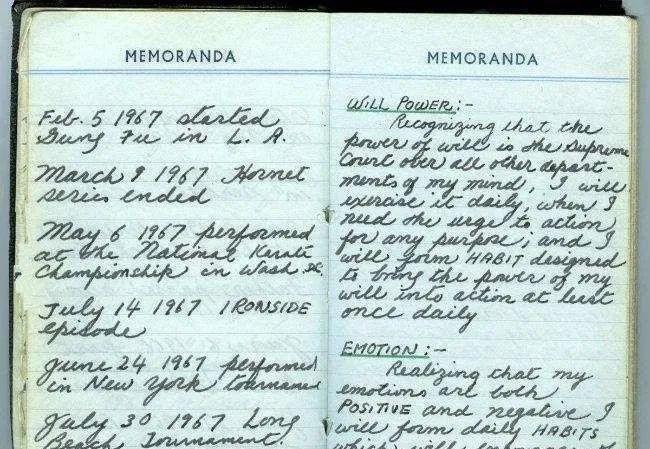 MEMORANDA
Feb. 5 1967 started
Gung Fu in L. A.
March 9 1967 Hornet
series ended
May 6 1967 performed
at the National Karate
Championship in Wash DC.
July 14 1967 IRONSIDE
episode
June 24 1967 performed
in New York tournament
July 30 1967 Long
Beach Tournament.
MEMORANDA
WILL POWER:-
Recognizing that the
power of will is the supreme
Court over all other depart-
ments of my mind, I will
exercise it daily, when I
need the urge to action
for any purpose; and I
will form HABIT designed
to bring the power of my
will into action at least
once daily
EMOTION:-
Realizing that my
emotions are both
POSITIVE and negative I
will form daily HABITS
which will
of